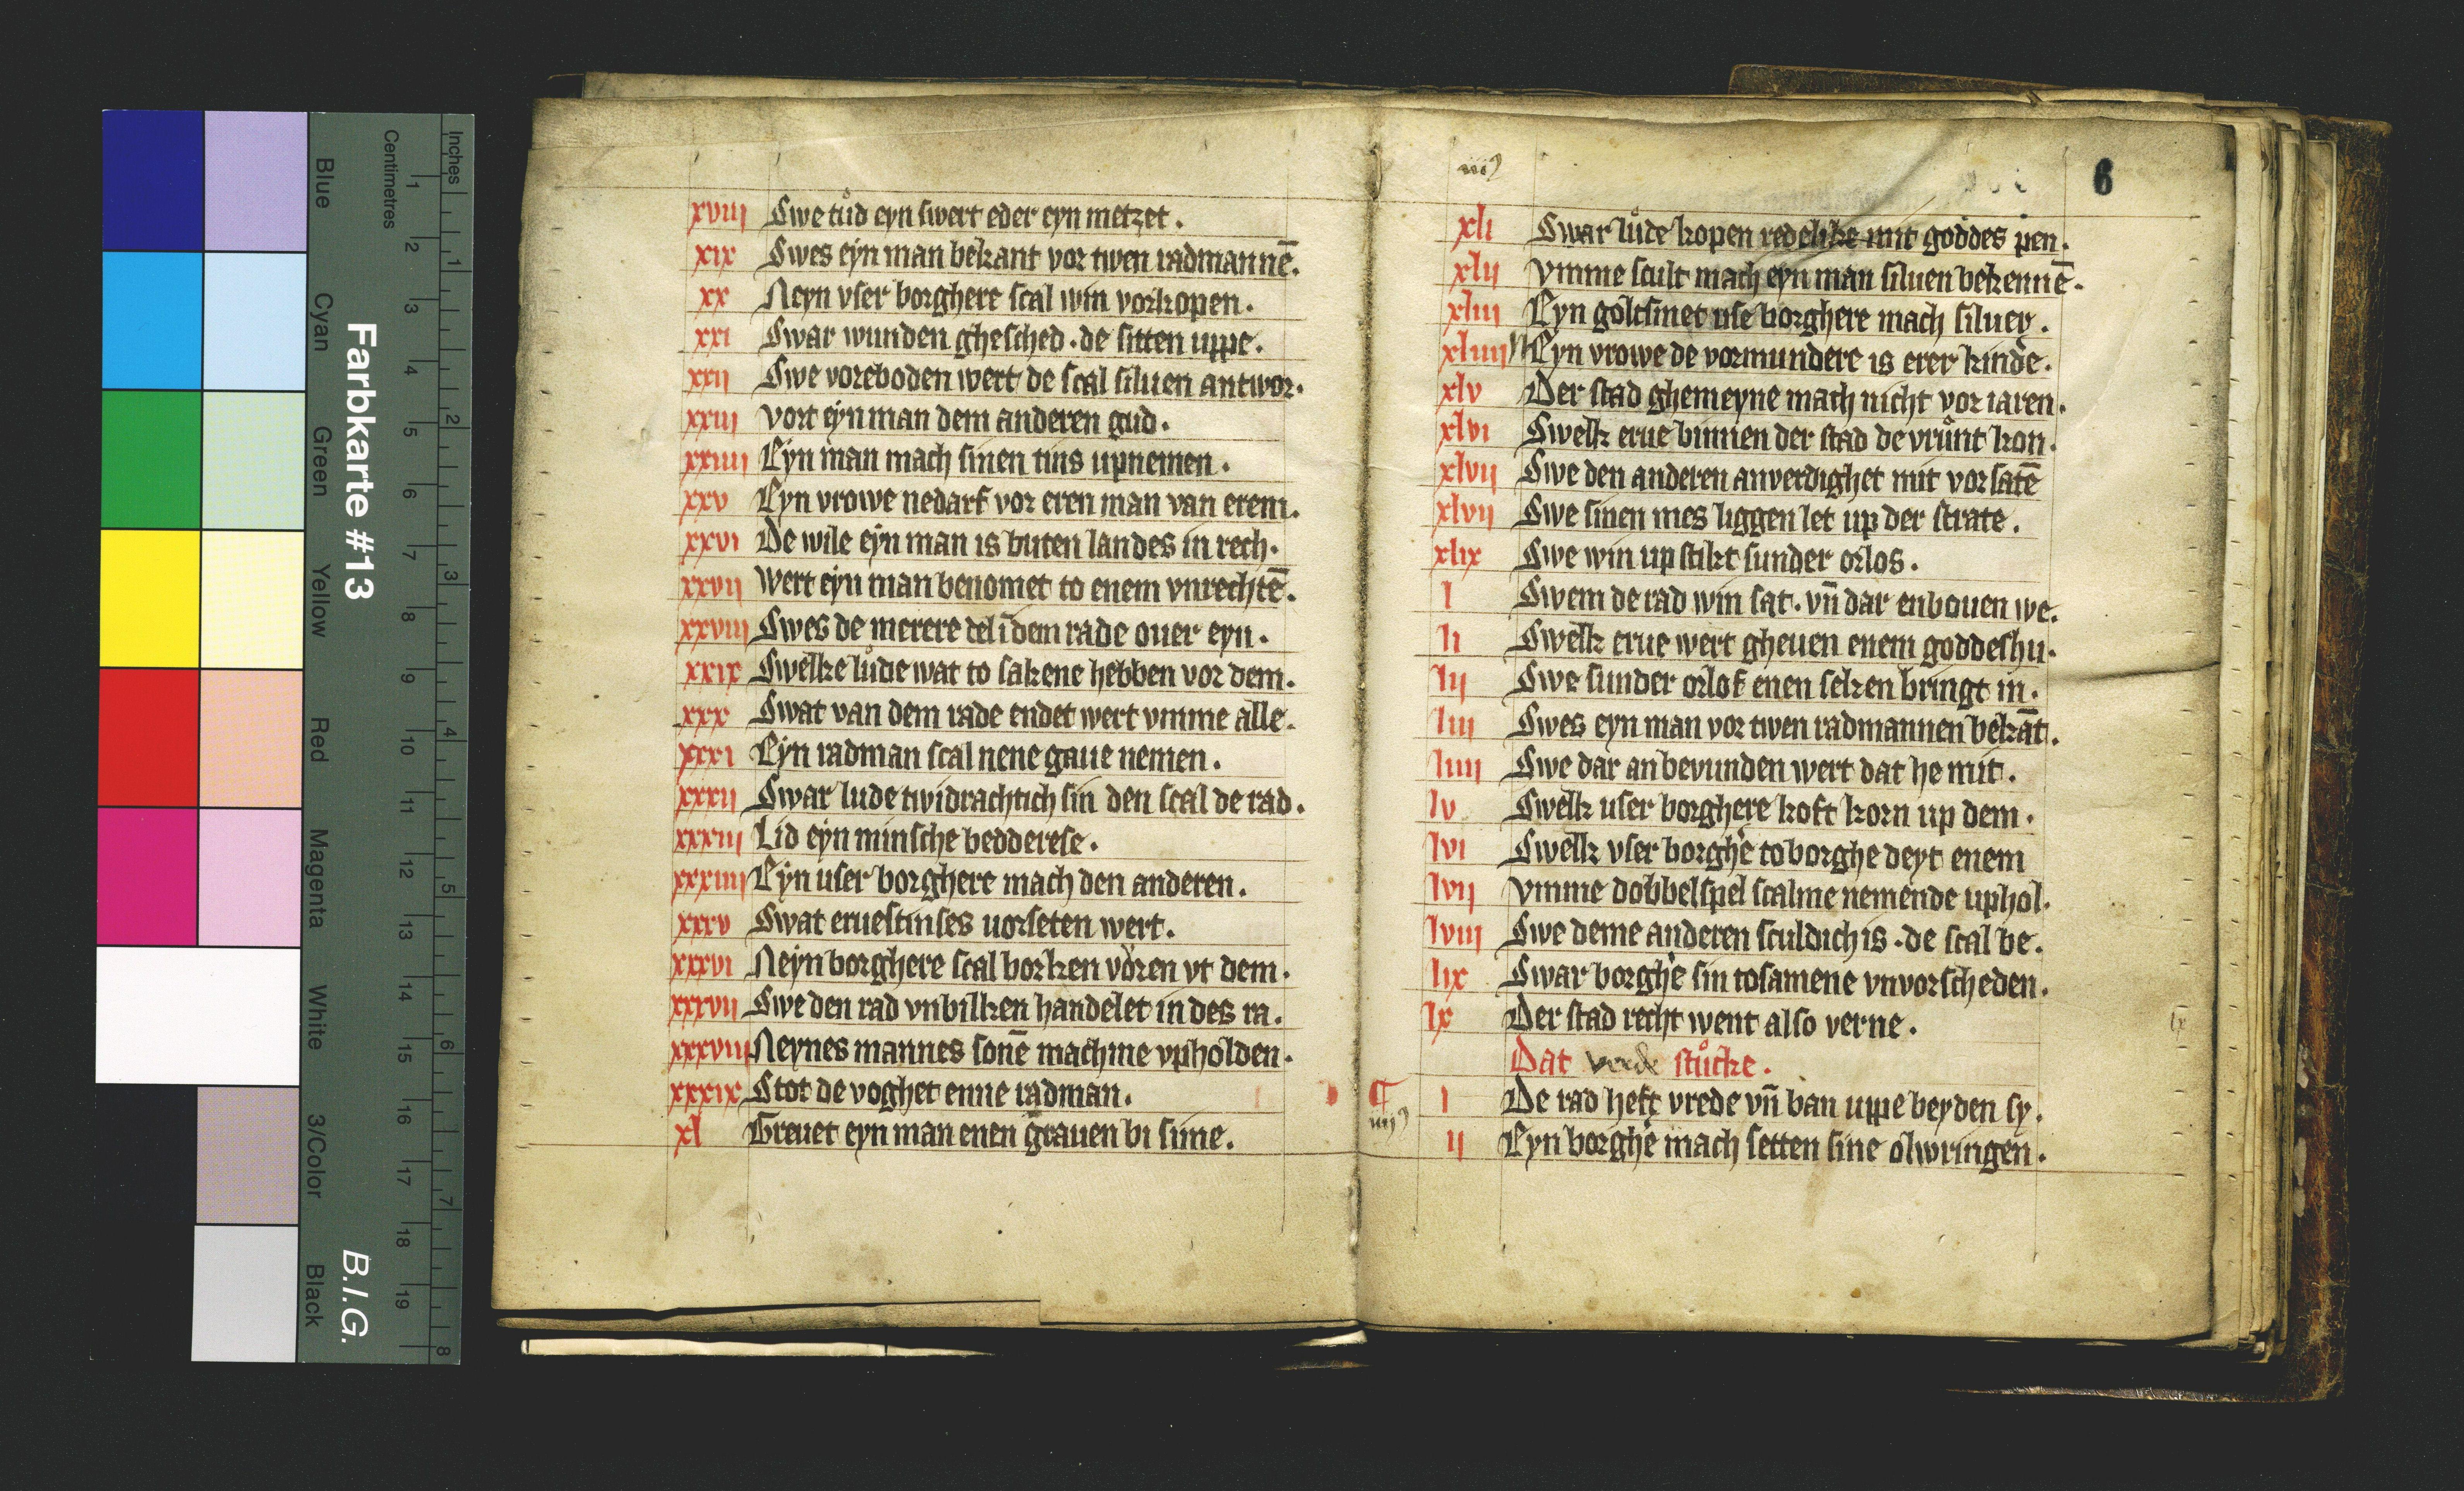 Blue
Cyan
Green
Yellow
Red
Magenta
White
3/Color
Black
Farbkarte #13
B.I.G.
Centimetres
Inches
1 2 3 4 5 6 7 8 9 10 11 12 13 14 15 16 17 18 19
1 2 3 4 5 6 7 8
xviii Swe tůd eyn swert eder eyn metzet.
xix Swes eyn man bekant vor twen radmannē.
xx Neyn vser borghere scal win vorkopen.
xxi Swar wunden ghesched. de sitten uppe.
xxii Swe voreboden wert de scal siluen antwor.
xxiii vort eyn man dem anderen gud.
xxiiii Eyn man mach sinen tins upnemen.
xxv Eyn vrowe nedarf vor eren man van erem.
xxvi De wile eyn man is buten landes in rech.
xxvii wert eyn man benomet to enem vnrechtē.
xxviii Swes de merere del ī dem rade ouer eyn.
xxix Swelke lůde wat to sakene hebben vor dem.
xxx Swat van dem rade endet wert vmme alle.
xxxi Eyn radman scal nene gaue nemen.
xxxii Swar lude twidrachtich sin den scal de rad.
xxxiii Lid eyn minsche bedderese.
xxxiiii Eyn user borghere mach den anderen.
xxxv Swat eruestinses uorseten wert.
xxxvi Neyn borghere scal borken vören vt dem.
xxxvii Swe den rad vnbilken handelet in des ra.
xxxviii Neynes mannes sonē machme vpholden.
xxxix Stot de voghet enne radman.
xl Greuet eyn man enen grauen bi sime.
6
xli Swar lůde kopen redelike mit goddes pen.
xlii vmme scult mach eyn man siluen bekennē.
xliii Eyn goltsmet use borghere mach siluer.
xliiii Eyn vrowe de vormundere is erer kinde.
xlv Der stad ghemeyne mach nicht vor iaren.
xlvi Swelk erue binnen der stad de vrůnt kon.
xlvii Swe den anderen anverdighet mit vorsatē
xlvii Swe sinen mes liggen let up der strate.
xlix Swe win up stikt sunder orlos.
l Swem de rad win sat. vn̄ dar enbouen we.
li Swelk erue wert gheuen enem goddeshu.
lii Swe sunder orlof enen seken bringt in.
liii Swes eyn man vor twen radmannen bekāt.
liiii Swe dar an bevunden wert dat he mit.
lv Swelk user borghere koft korn up dem.
lvi Swelk vser borghe to borghe deyt enem
lvii vmme dobbelspel scalme nemende uphol.
lviii Swe deme anderen sculdich is. de scal be.
lix Swar borghe sin tosamene vnvorscheden.
lx Der stad recht went also verne.
Dat verde stůcke.
i De rad heft vrede vn̄ ban uppe beyden sy.
ii Eyn borghe mach setten sine olwringen.